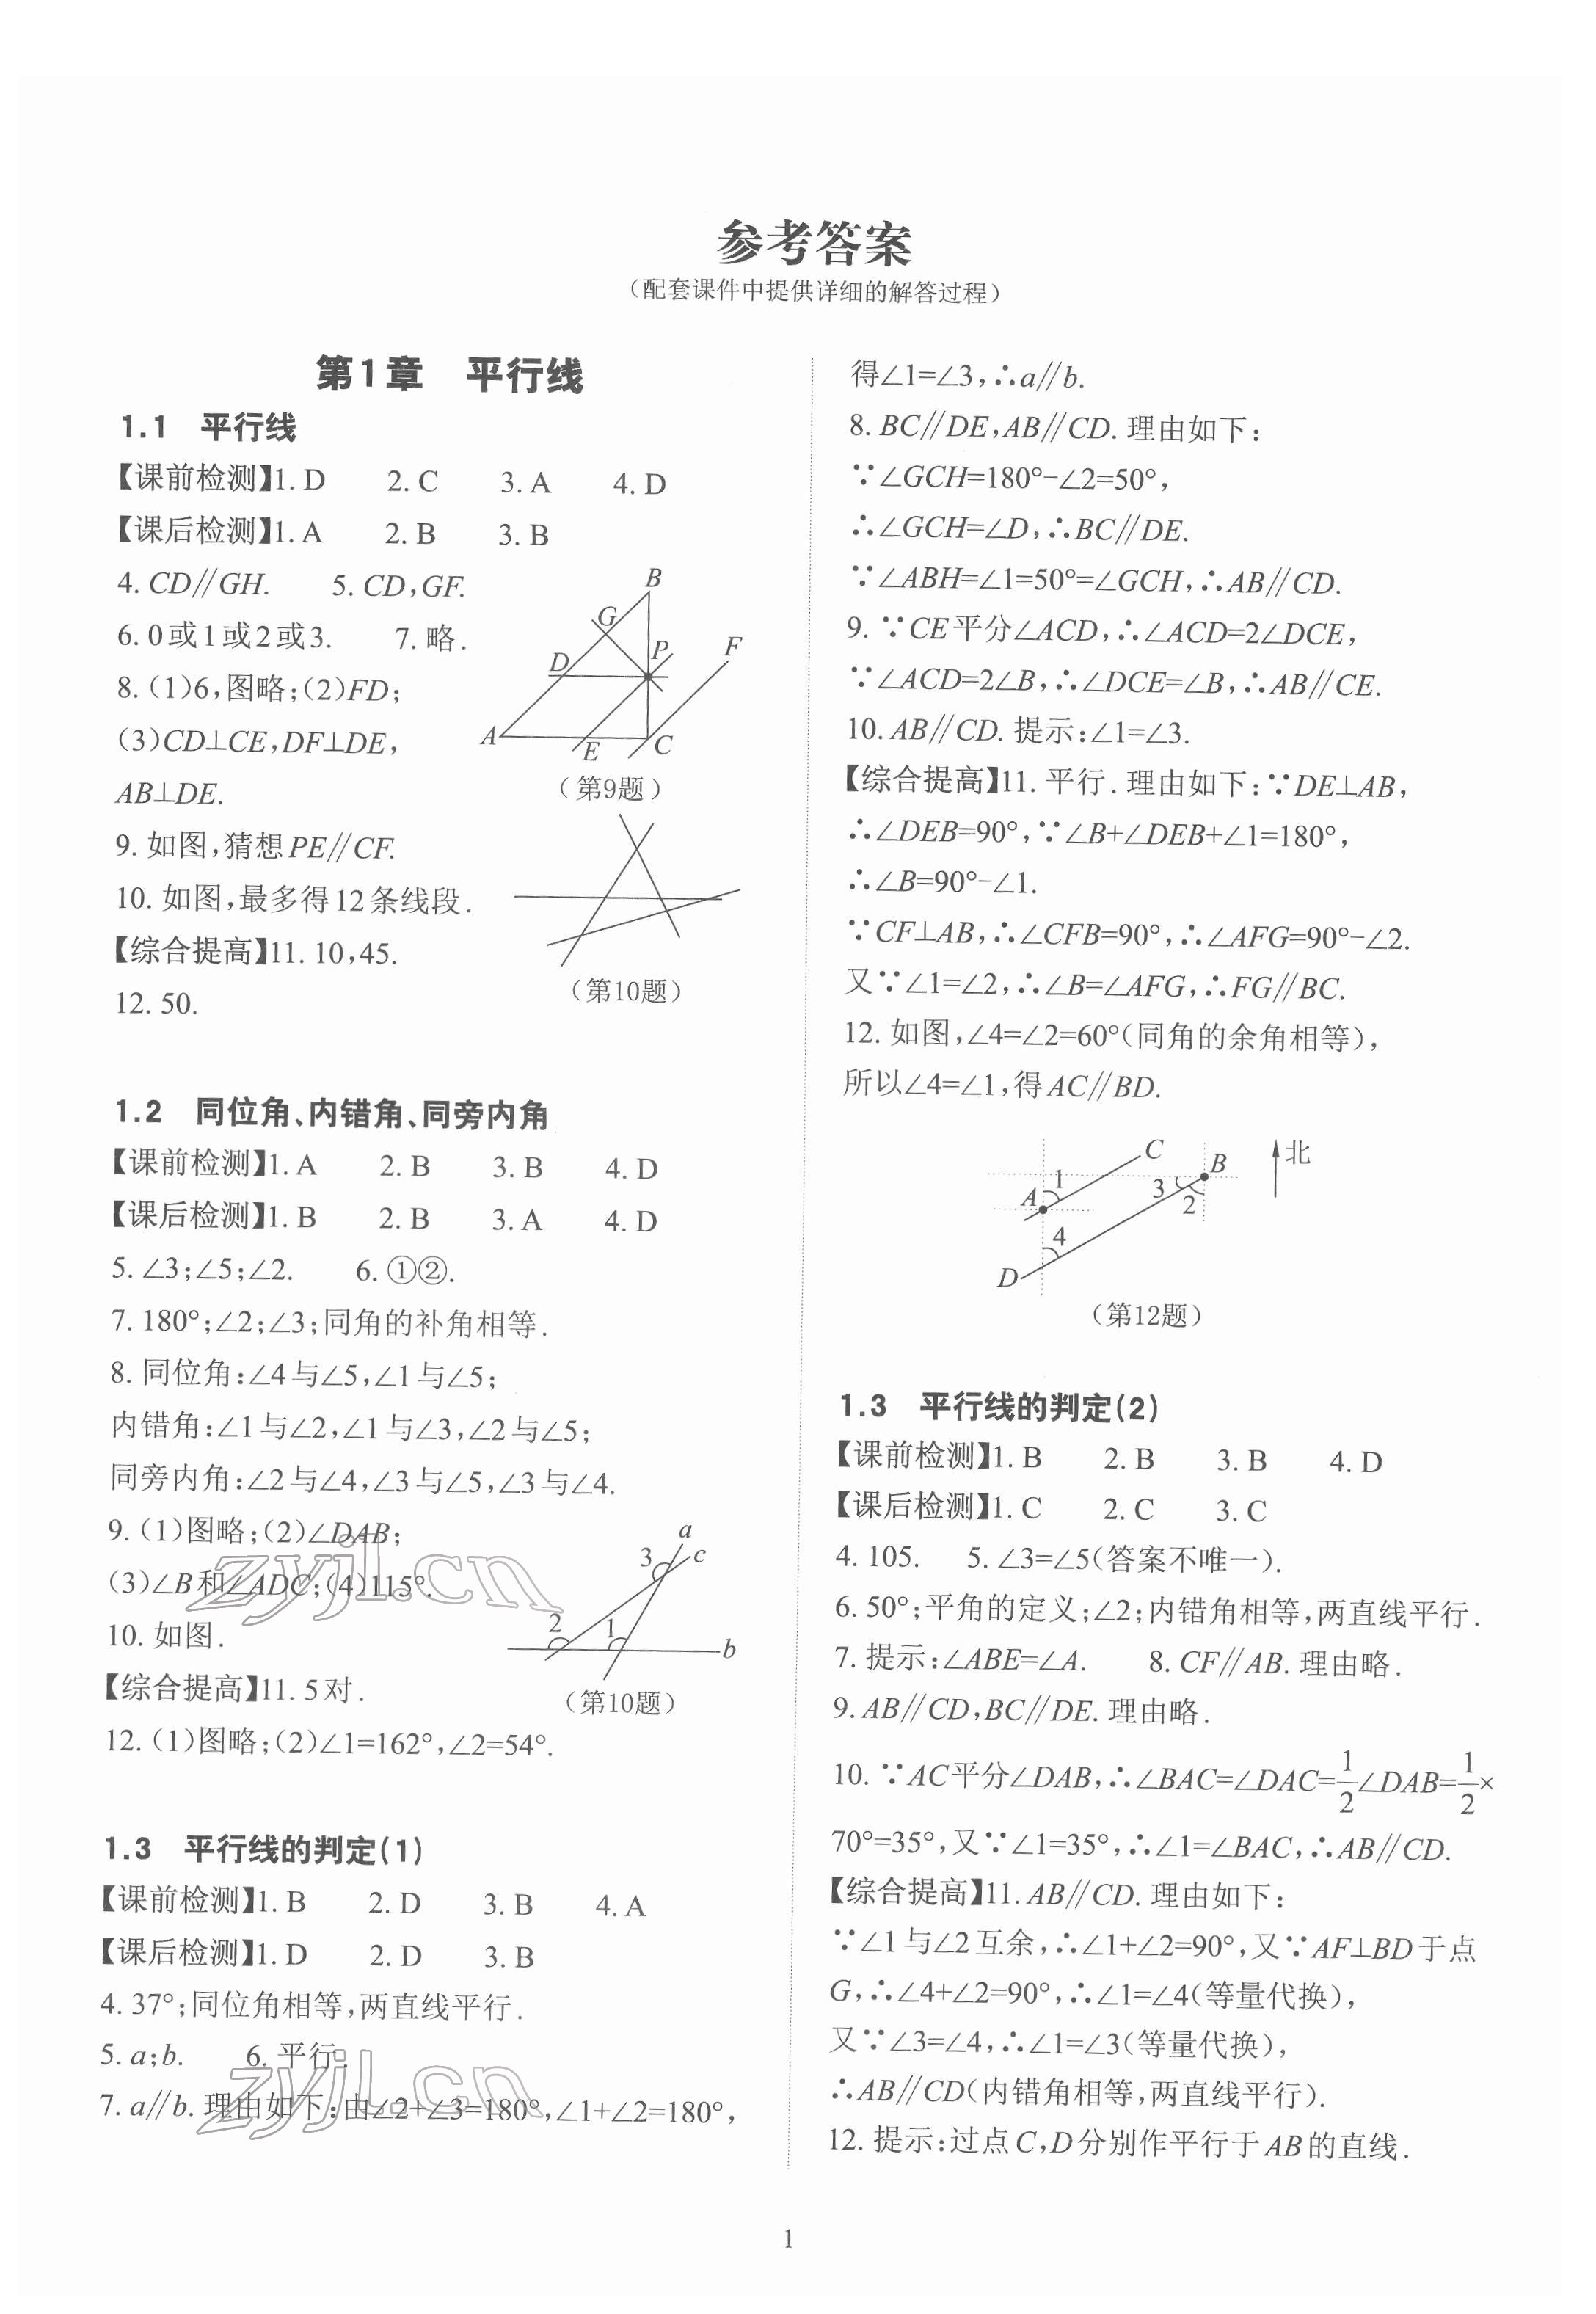 参考答案
（配套课件中提供详细的解答过程）
第1章 平行线
1.1 平行线
【课前检测】1. D 2. C 3. A 4. D
【课后检测】1. A 2. B 3. B
4. CD∥GH. 5. CD,GF.
6. 0或1或2或3. 7. 略.
8. (1)6,图略;(2)FD;
(3)CD⊥CE,DF⊥DE,
AB⊥DE.
9. 如图,猜想PE∥CF.
10. 如图,最多得12条线段.
【综合提高】11. 10,45.
12. 50.
B
G
P
F
D
A
E
C
（第9题）
（第10题）
1.2 同位角、内错角、同旁内角
【课前检测】1. A 2. B 3. B 4. D
【课后检测】1. B 2. B 3. A 4. D
5. ∠3;∠5;∠2. 6. ①②.
7. 180°;∠2;∠3;同角的补角相等.
8. 同位角:∠4与∠5,∠1与∠5;
内错角:∠1与∠2,∠1与∠3,∠2与∠5;
同旁内角:∠2与∠4,∠3与∠5,∠3与∠4.
9. (1)图略;(2)∠DAB;
(3)∠B和∠ADC;(4)115°.
10. 如图.
【综合提高】11. 5对.
12. (1)图略;(2)∠1=162°,∠2=54°.
a
3
c
2
1
b
（第10题）
zyjl.cn
1.3 平行线的判定(1)
【课前检测】1. B 2. D 3. B 4. A
【课后检测】1. D 2. D 3. B
4. 37°;同位角相等,两直线平行.
5. a;b. 6. 平行.
7. a∥b. 理由如下:由∠2+∠3=180°,∠1+∠2=180°,
zyjl.cn
得∠1=∠3,∴a∥b.
8. BC∥DE,AB∥CD. 理由如下:
∵∠GCH=180°-∠2=50°,
∴∠GCH=∠D,∴BC∥DE.
∵∠ABH=∠1=50°=∠GCH,∴AB∥CD.
9. ∵CE平分∠ACD,∴∠ACD=2∠DCE,
∵∠ACD=2∠B,∴∠DCE=∠B,∴AB∥CE.
10. AB∥CD. 提示:∠1=∠3.
【综合提高】11. 平行. 理由如下:∵DE⊥AB,
∴∠DEB=90°,∵∠B+∠DEB+∠1=180°,
∴∠B=90°-∠1.
∵CF⊥AB,∴∠CFB=90°,∴∠AFG=90°-∠2.
又∵∠1=∠2,∴∠B=∠AFG,∴FG∥BC.
12. 如图,∠4=∠2=60°(同角的余角相等),
所以∠4=∠1,得AC∥BD.
C
B
北
A
1
3
2
4
D
（第12题）
1.3 平行线的判定(2)
【课前检测】1. B 2. B 3. B 4. D
【课后检测】1. C 2. C 3. C
4. 105. 5. ∠3=∠5(答案不唯一).
6. 50°;平角的定义;∠2;内错角相等,两直线平行.
7. 提示:∠ABE=∠A. 8. CF∥AB. 理由略.
9. AB∥CD,BC∥DE. 理由略.
10. ∵AC平分∠DAB,∴∠BAC=∠DAC=1/2∠DAB=1/2×
70°=35°,又∵∠1=35°,∴∠1=∠BAC,∴AB∥CD.
【综合提高】11. AB∥CD. 理由如下:
∵∠1与∠2互余,∴∠1+∠2=90°,又∵AF⊥BD于点
G,∴∠4+∠2=90°,∴∠1=∠4(等量代换),
又∵∠3=∠4,∴∠1=∠3(等量代换),
∴AB∥CD(内错角相等,两直线平行).
12. 提示:过点C,D分别作平行于AB的直线.
1